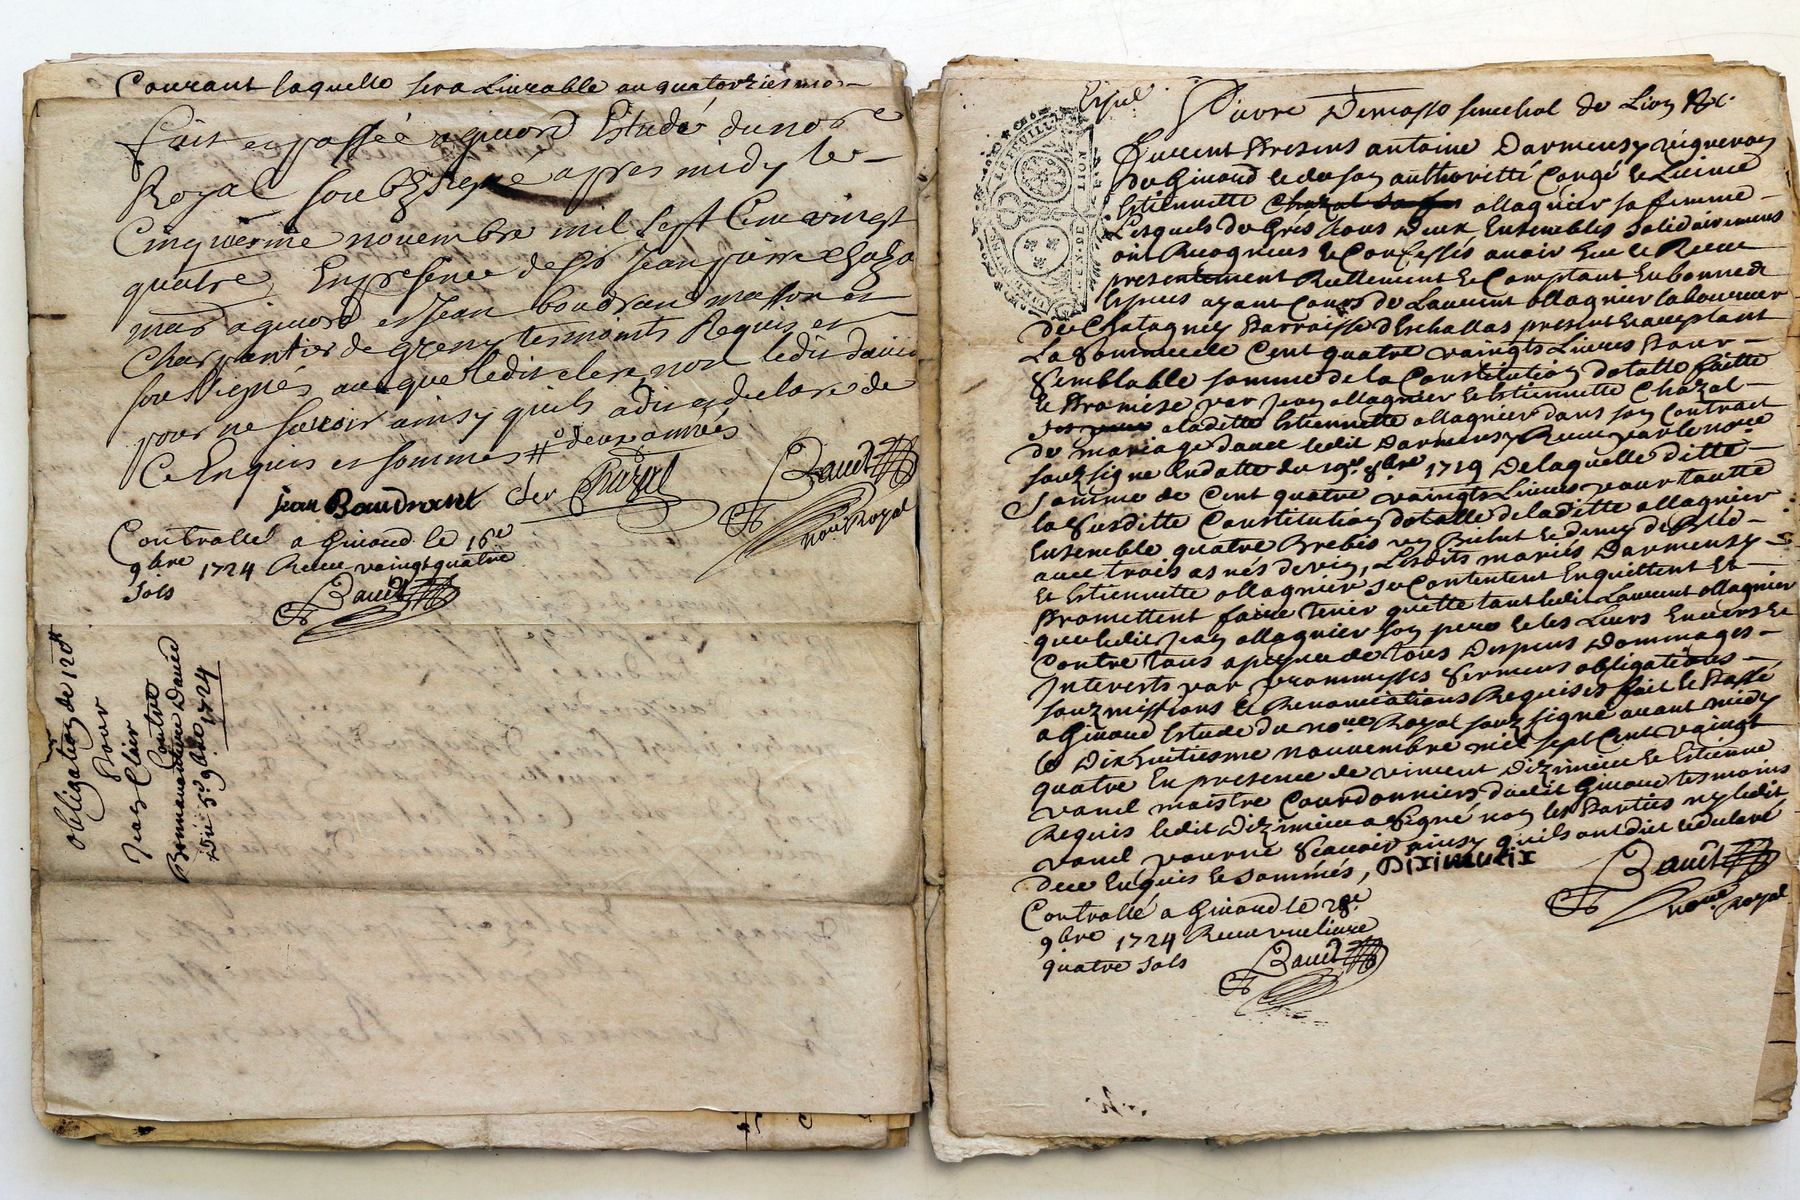 Courant laquelle sera Livrable au quatorziesme
fait et passé a givord Estude du no.re
Royal soubzsigné apres midy le
Cinquieme novembre mil sept Cent vingt
quatre, En presence de Sr Jean pierre Chazal
md a givord et Jean boudran masson et
Charpentier de tesmoints Requis et
soussignés avec que ledit clerc non ledit
pour ne savoir ainsy quils a dit et declare de
Ce Enquis et sommes deux années
jean Baudrant Cler Chazal Bauit
no.re Royal
Controllé a Givord le 16e
9bre 1724 Receu vaingtquatre
sols
Bauit
obligation de 12
Pour
Jean Clair
Contre
Bonnaventure David
Du 5e 9bre 1724
Pierre senechal de Lion &c.
Furent Presens antoine Darmensy vigneron
de Givord et de son authoritté Congé et Licence
Estiennette Chazal allagnier sa femme
Lesquels de Gres tous deux Ensembles solidairement
ont Recognus et Confessés avoir Eu et Receu
presentement Reellement et Comptant En bonnes
Especes ayant Cours de Laurent allagnier laboureur
de Chatagney Parroisse d'Echallas present et acceptant
La somme de Cent quatre vaingts Livres Pour
semblable somme de la Constitution dotalle faitte
et Promise par Jean allagnier et Estiennette Chazal
a laditte Estiennette allagnier dans son Contract
de mariage d'avec ledit Darmensy Receu par le no.re
souzsigné En datte du 19e 8bre 1719 De laquelle ditte
somme de Cent quatre vaingts Livres pour toutte
la susditte Constitution dotalle de laditte allagnier
Ensemble quatre Brebis un Bichet et demy de Bled
avec trois asnés de vin, Lesdits mariés Darmensy
Et Estiennette allagnier se Contentent En quittent Et
Promettent faire tenir quitte tant ledit Laurent allagnier
que ledit Jean allagnier son pere et les Leurs Envers Et
Contre tous a peyne de tous Despens Dommages
Interests par prommesses serments obligations
souzmissions et Renonciations Requises fait et Passé
a Givord Estude du no.re Royal souzsigné avant midy
le Dixhuitiesme nouvembre mil sept Cent vaingt
quatre En presence de vincent Diximieu et Estienne
vanel maistre Courdonniers dudit Givord tesmoins
Requis ledit Diximieu a signé non les Parties ny ledit
vanel pour ne scavoir ainsy quils ont dit et declaré
de ce Enquis et sommés,
Bauit
no.re Royal
Controllé a Givord le 28e
9bre 1724 Receu une livre
quatre sols
Bauit